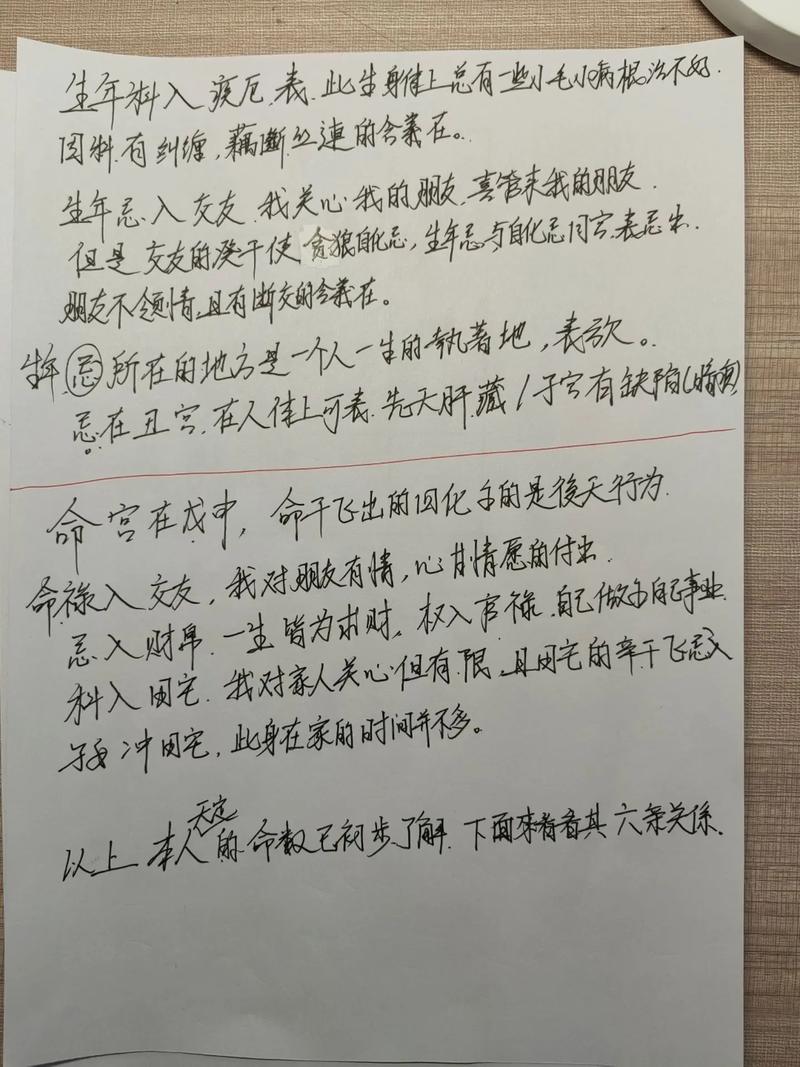 生年科入疾厄,表.此生身体上总有一些小毛小病根治不好.
因科.有纠缠,藕斷丝連的含義在。
生年忌.入交友.我关心我的朋友.喜管束我的朋友.
但是交友的癸干使貪狼自化忌,生年忌与自化忌同宫.表忌出.
朋友不领情,且有断交的含義在。
生年忌所在的地方是一个人一生的執著地,表欠。
忌在丑宫.在人体上可表.先天肝.藏/子宫有缺陷(暗病)
命宫在戊申,命干飞出的四化手的是後天行为.
命禄入交友,我对朋友有情,心甘情愿的付出.
忌入财帛.一生皆为求财.权入官禄.自己做自己事业.
科入田宅.我对家人关心但有限,且田宅的辛干飞忌入
子女冲田宅,此身在家的时间并不多。
以上本人天定的命数已初步了解.下面来看看其六条关係.